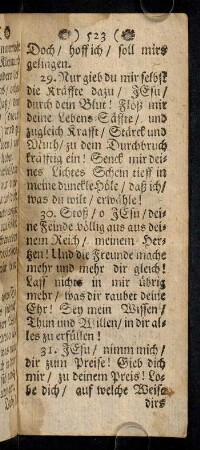 523
Doch/ hoff ich/ soll mirs
gelingen.
29. Nur gieb du mir selbst
die Kräffte dazu/ JEsu/
durch dein Blut! Flöß mir
deine Lebens-Säffte/ und
zugleich Krafft/ Stärck und
Muth/ zu dem Durchbruch
kräfftig ein! Senck mir dei-
nes Lichtes Schein tieff in
meine dunckle Höle/ daß ich/
was du wilt/ erwähle!
30. Stoß/ o JEsu/ dei-
ne Feinde völlig aus aus dei-
nem Reich/ meinem Her-
tzen! Und die Freunde mache
mehr und mehr dir gleich!
Lass nichts in mir übrig
mehr/ was dir raubet deine
Ehr! Sey mein Wissen/
Thun und Willen/ in dir al-
les zu erfüllen!
31. JEsu/ nimm mich/
dir zum Preise! Gieb dich
mir/ zu deinem Preis! Lo-
be dich/ auf welche Weise
dirs